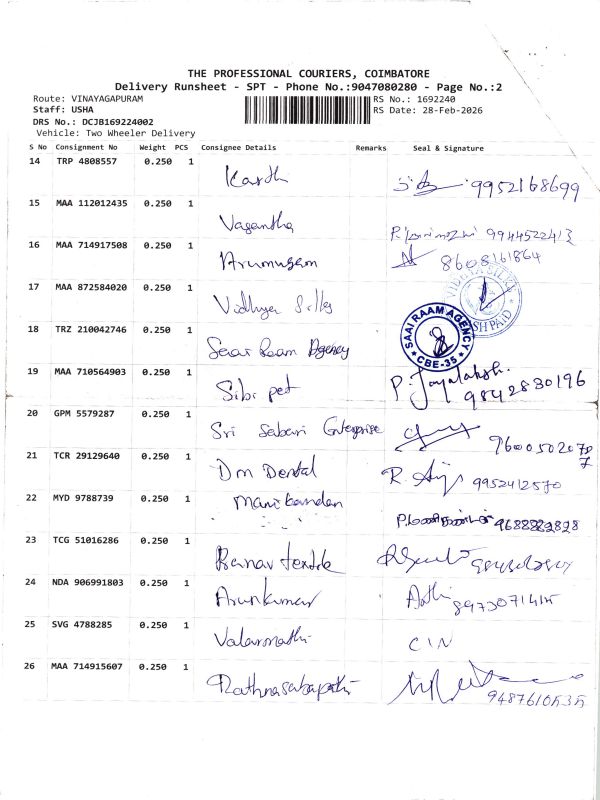 THE PROFESSIONAL COURIERS, COIMBATORE
Delivery Runsheet - SPT - Phone No.:9047080280 - Page No.:2
Route: VINAYAGAPURAM RS No.: 1692240
Staff: USHA RS Date: 28-Feb-2026
DRS No.: DCJB169224002
Vehicle: Two Wheeler Delivery
S No Consignment No Weight PCS Consignee Details Remarks Seal & Signature
14 TRP 4808557 0.250 1
Karthi 9952168699
15 MAA 112012435 0.250 1
Vasantha 9944522413
16 MAA 714917508 0.250 1
Arumugam 8608161864
17 MAA 872584020 0.250 1
Vidhya Silks
18 TRZ 210042746 0.250 1
SAAI RAAM AGENCY
CBE-35
Saai Raam Agency
19 MAA 710564903 0.250 1
Sibi pet 9842830196
20 GPM 5579287 0.250 1
Sri Sabari Enterprise
21 TCR 29129640 0.250 1
Dm Dental 9952412570
22 MYD 9788739 0.250 1
Manikandan
23 TCG 51016286 0.250 1
24 NDA 906991803 0.250 1
Arunkumar
25 SVG 4788285 0.250 1
Valarmathi
26 MAA 714915607 0.250 1
Rathnasabapathi